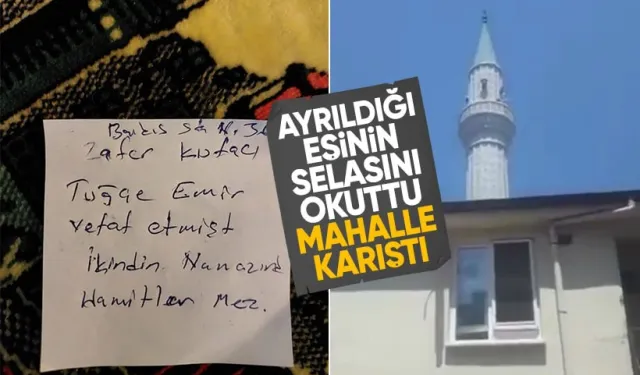 Zafer
Tuğçe Emir
vefat etmişt
İkindin Namazınd
Hamitler Mez.
AYRILDIĞI
EŞİNİN
SELASINI
OKUTTU
MAHALLE
KARIŞTI